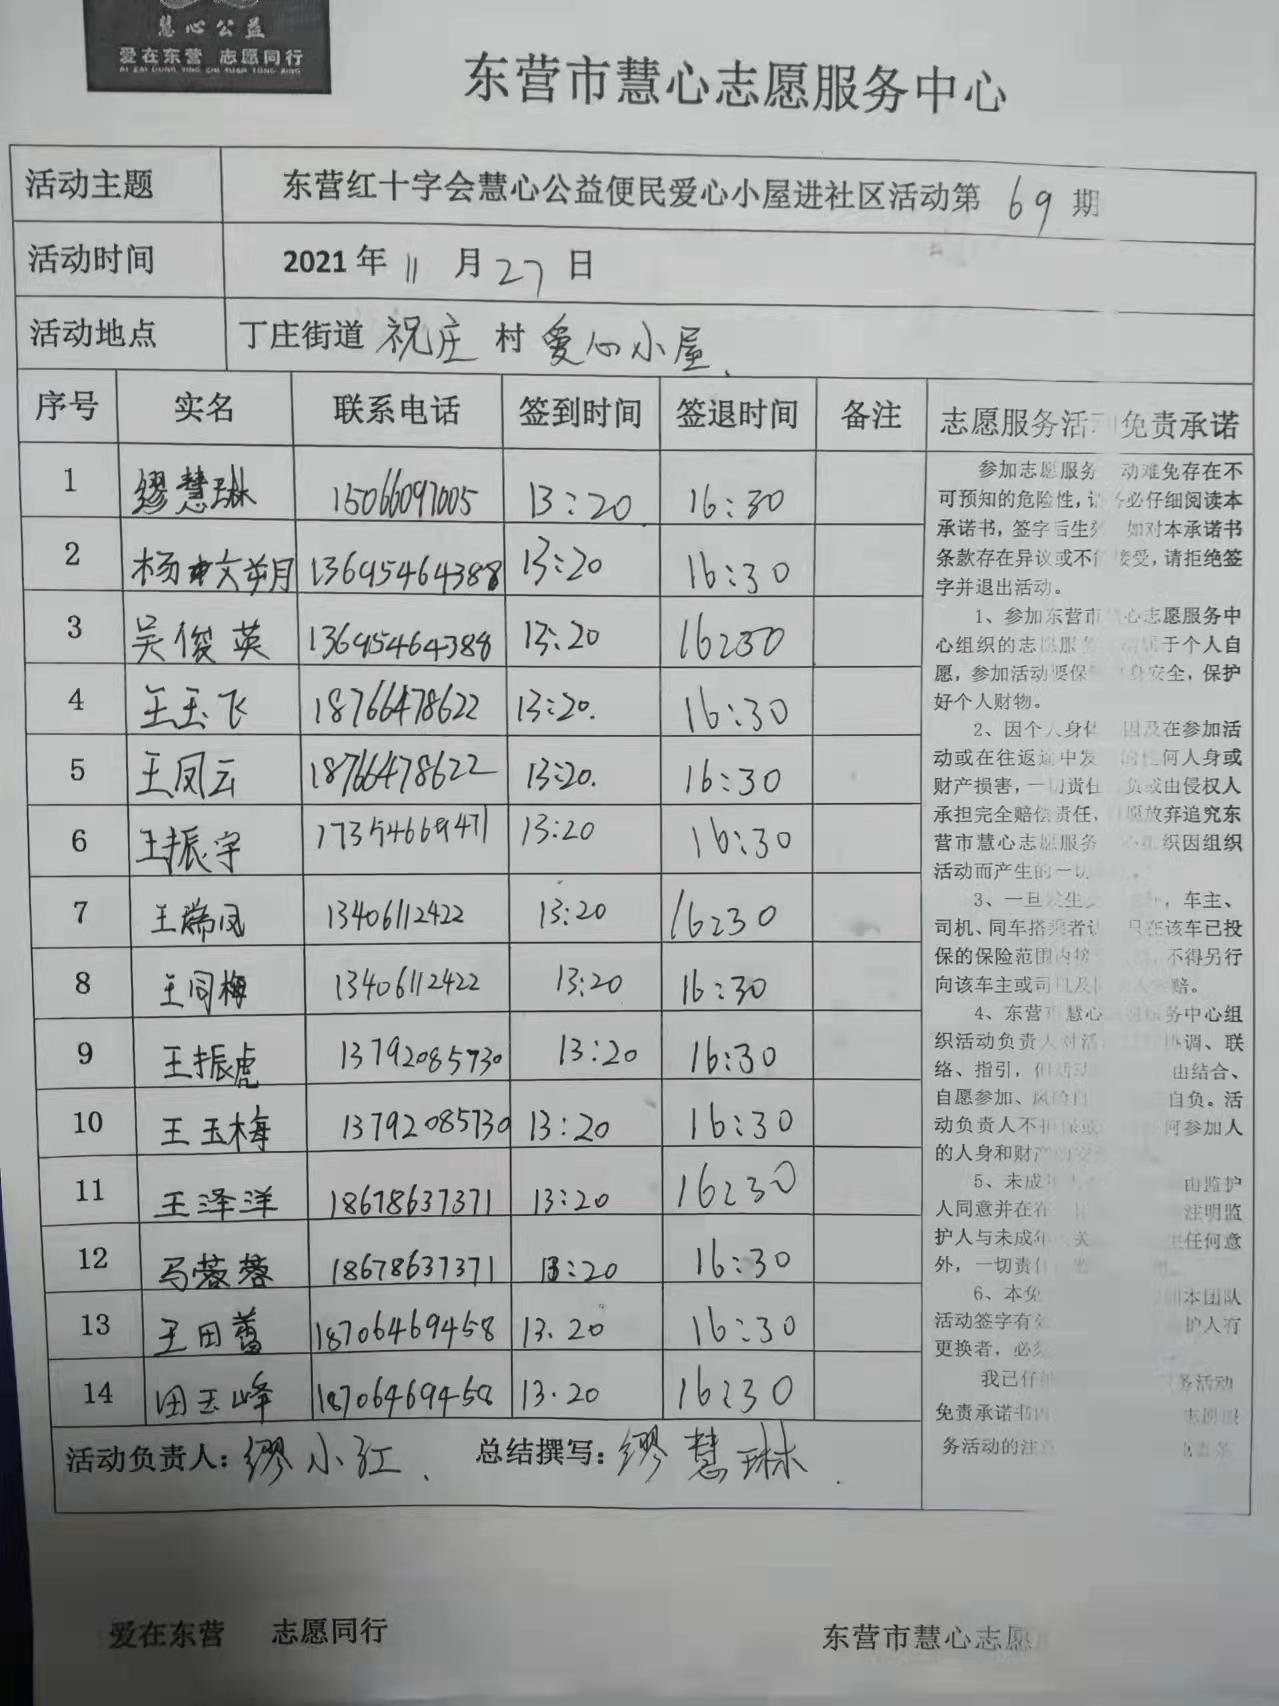 慧心公益
爱在东营 志愿同行
AI ZAI DONG YING ZHI YUAN TONG XING
东营市慧心志愿服务中心
活动主题 东营红十字会慧心公益便民爱心小屋进社区活动第 69 期
活动时间 2021年 11 月 27 日
活动地点 丁庄街道 祝庄 村 爱心小屋
序号 实名 联系电话 签到时间 签退时间 备注
1 缪慧琳 15066097005 13:20 16:30
2 杨文苹月 13695464388 13:20 16:30
3 吴俊英 13695464388 13:20 16:30
4 王玉飞 18766478622 13:20. 16:30
5 王凤云 18766478622 13:20. 16:30
6 王振宇 17354669471 13:20 16:30
7 王瑞凤 13406112422 13:20 16:30
8 王同梅 13406112422 13:20 16:30
9 王振虎 13792085730 13:20 16:30
10 王玉梅 13792085730 13:20 16:30
11 王泽洋 18678637371 13:20 16:30
12 马蓉蓉 18678637371 13:20 16:30
13 王田蕾 18706469458 13.20 16:30
14 田玉峰 18706469458 13.20 16:30
活动负责人：缪小红、 总结撰写：缪慧琳.
志愿服务活 免责承诺
参加志愿服务 动难免存在不
可预知的危险性, 必仔细阅读本
承诺书，签字后生效 如对本承诺书
条款存在异议或不 接受，请拒绝签
字并退出活动。
1、参加东营市 心志愿服务中
心组织的志愿服务 属于个人自
愿，参加活动要保 身安全，保护
好个人财物。
2、因个人身体 因及在参加活
动或在往返途中发 的任何人身或
财产损害，一切责任 负或由侵权人
承担完全赔偿责任， 愿放弃追究东
营市慧心志愿服务 心组织因组织
活动而产生的一切 。
3、一旦发生 ，车主、
司机、同车搭乘者 只在该车已投
保的保险范围内 ，不得另行
向该车主或司机及 赔。
4、东营市慧心 服务中心组
织活动负责人对活 协调、联
络、指引，但活动 由结合、
自愿参加、风险自 自负。活
动负责人不担保或 何参加人
的人身和财产的安
5、未成 由监护
人同意并在 注明监
护人与未成年 关 生任何意
外，一切责任
6、本免 本团队
活动签字有效 护人有
更换者，必须
我已仔细 务活动
免责承诺书内 志愿服
务活动的注意
爱在东营 志愿同行
东营市慧心志愿